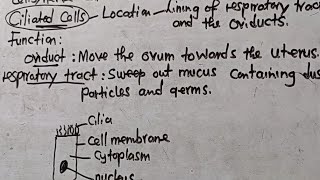 Ciliated Cells - Location - Lining of respiratory tract
and the oviducts.
Function:
oviduct : Move the ovum towards the uterus.
respiratory tract : Sweep out mucus containing dus
Particles and germs.
Cilia
Cell membrane
Cytoplasm
nucleus